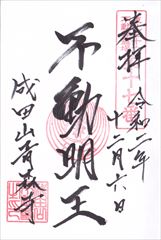 奉拝
令和二年
十二月六日
不動明王
成田山青森寺